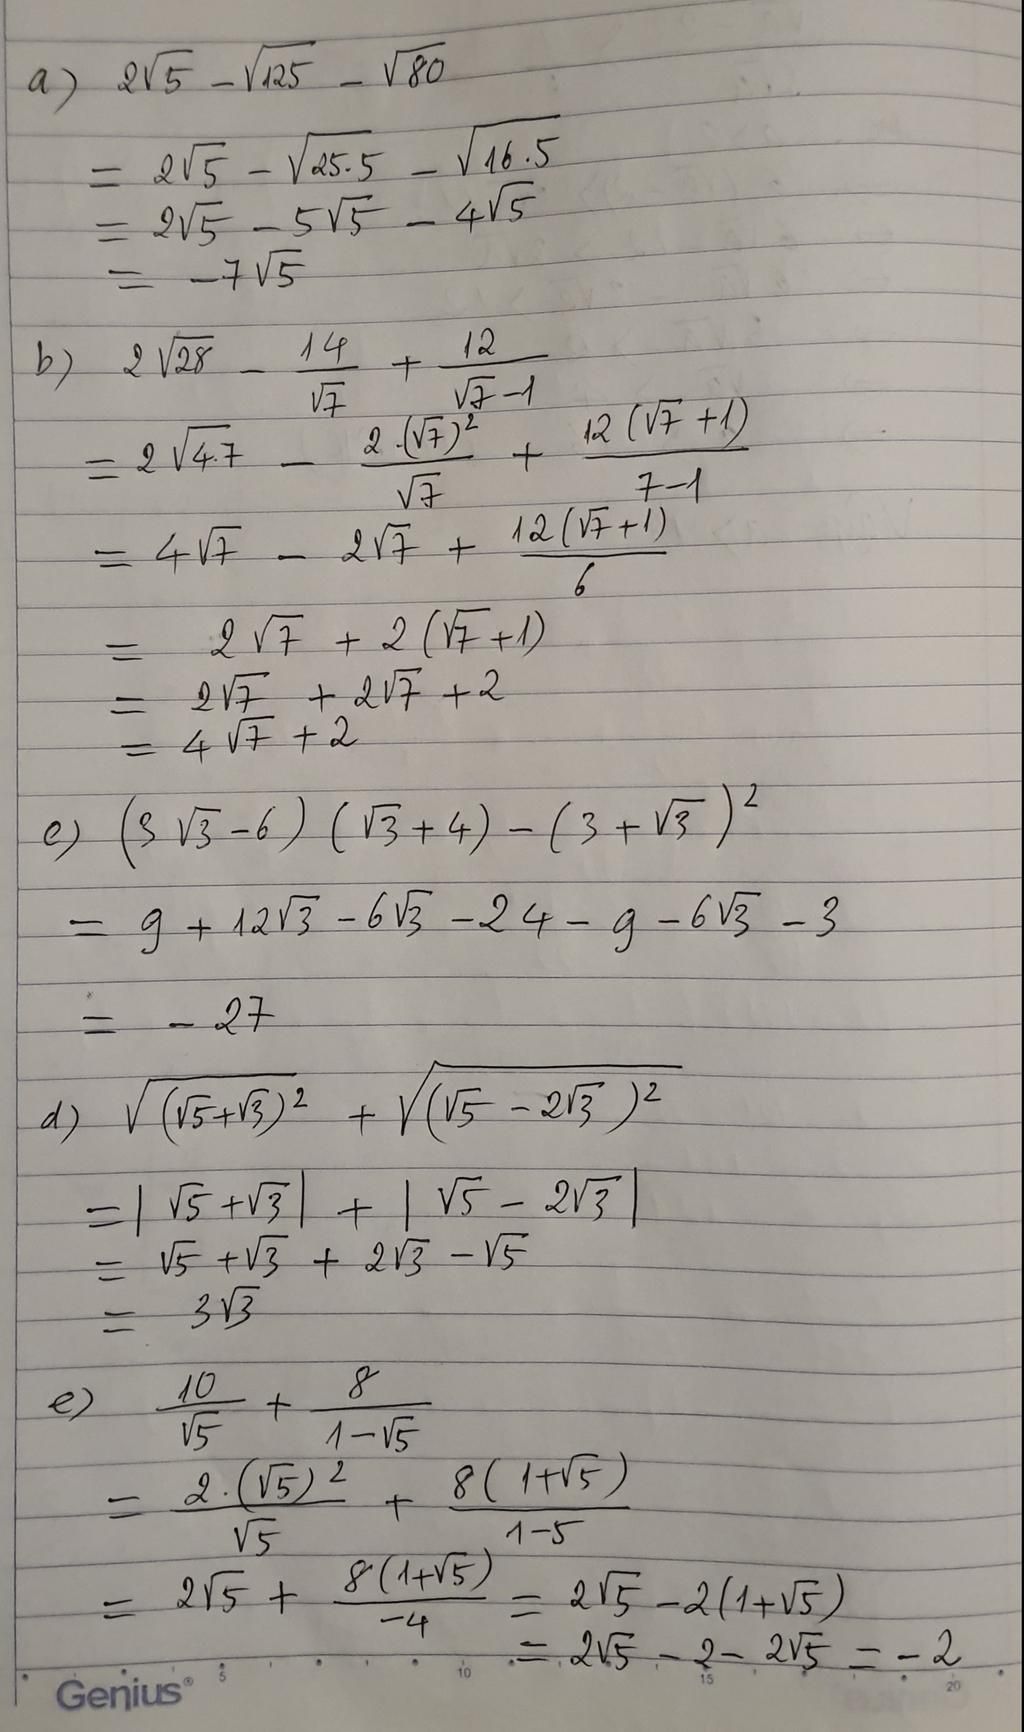 a) 2√5 - √125 - √80
= 2√5 - √25.5 - √16.5
= 2√5 - 5√5 - 4√5
= -7√5
b) 2√28 - 14/√7 + 12/(√7-1)
= 2√4.7 - 2.(√7)²/√7 + 12(√7+1)/(7-1)
= 4√7 - 2√7 + 12(√7+1)/6
= 2√7 + 2(√7+1)
= 2√7 + 2√7 + 2
= 4√7 + 2
c) (3√3-6)(√3+4)-(3+√3)²
= 9 + 12√3 - 6√3 - 24 - 9 - 6√3 - 3
= -27
d) √(√5+√3)² + √(√5-2√3)²
= |√5+√3| + |√5-2√3|
= √5+√3 + 2√3-√5
= 3√3
e) 10/√5 + 8/(1-√5)
= 2.(√5)²/√5 + 8(1+√5)/(1-5)
= 2√5 + 8(1+√5)/-4 = 2√5 - 2(1+√5)
= 2√5 - 2 - 2√5 = -2
Genius® 5 10 15 20